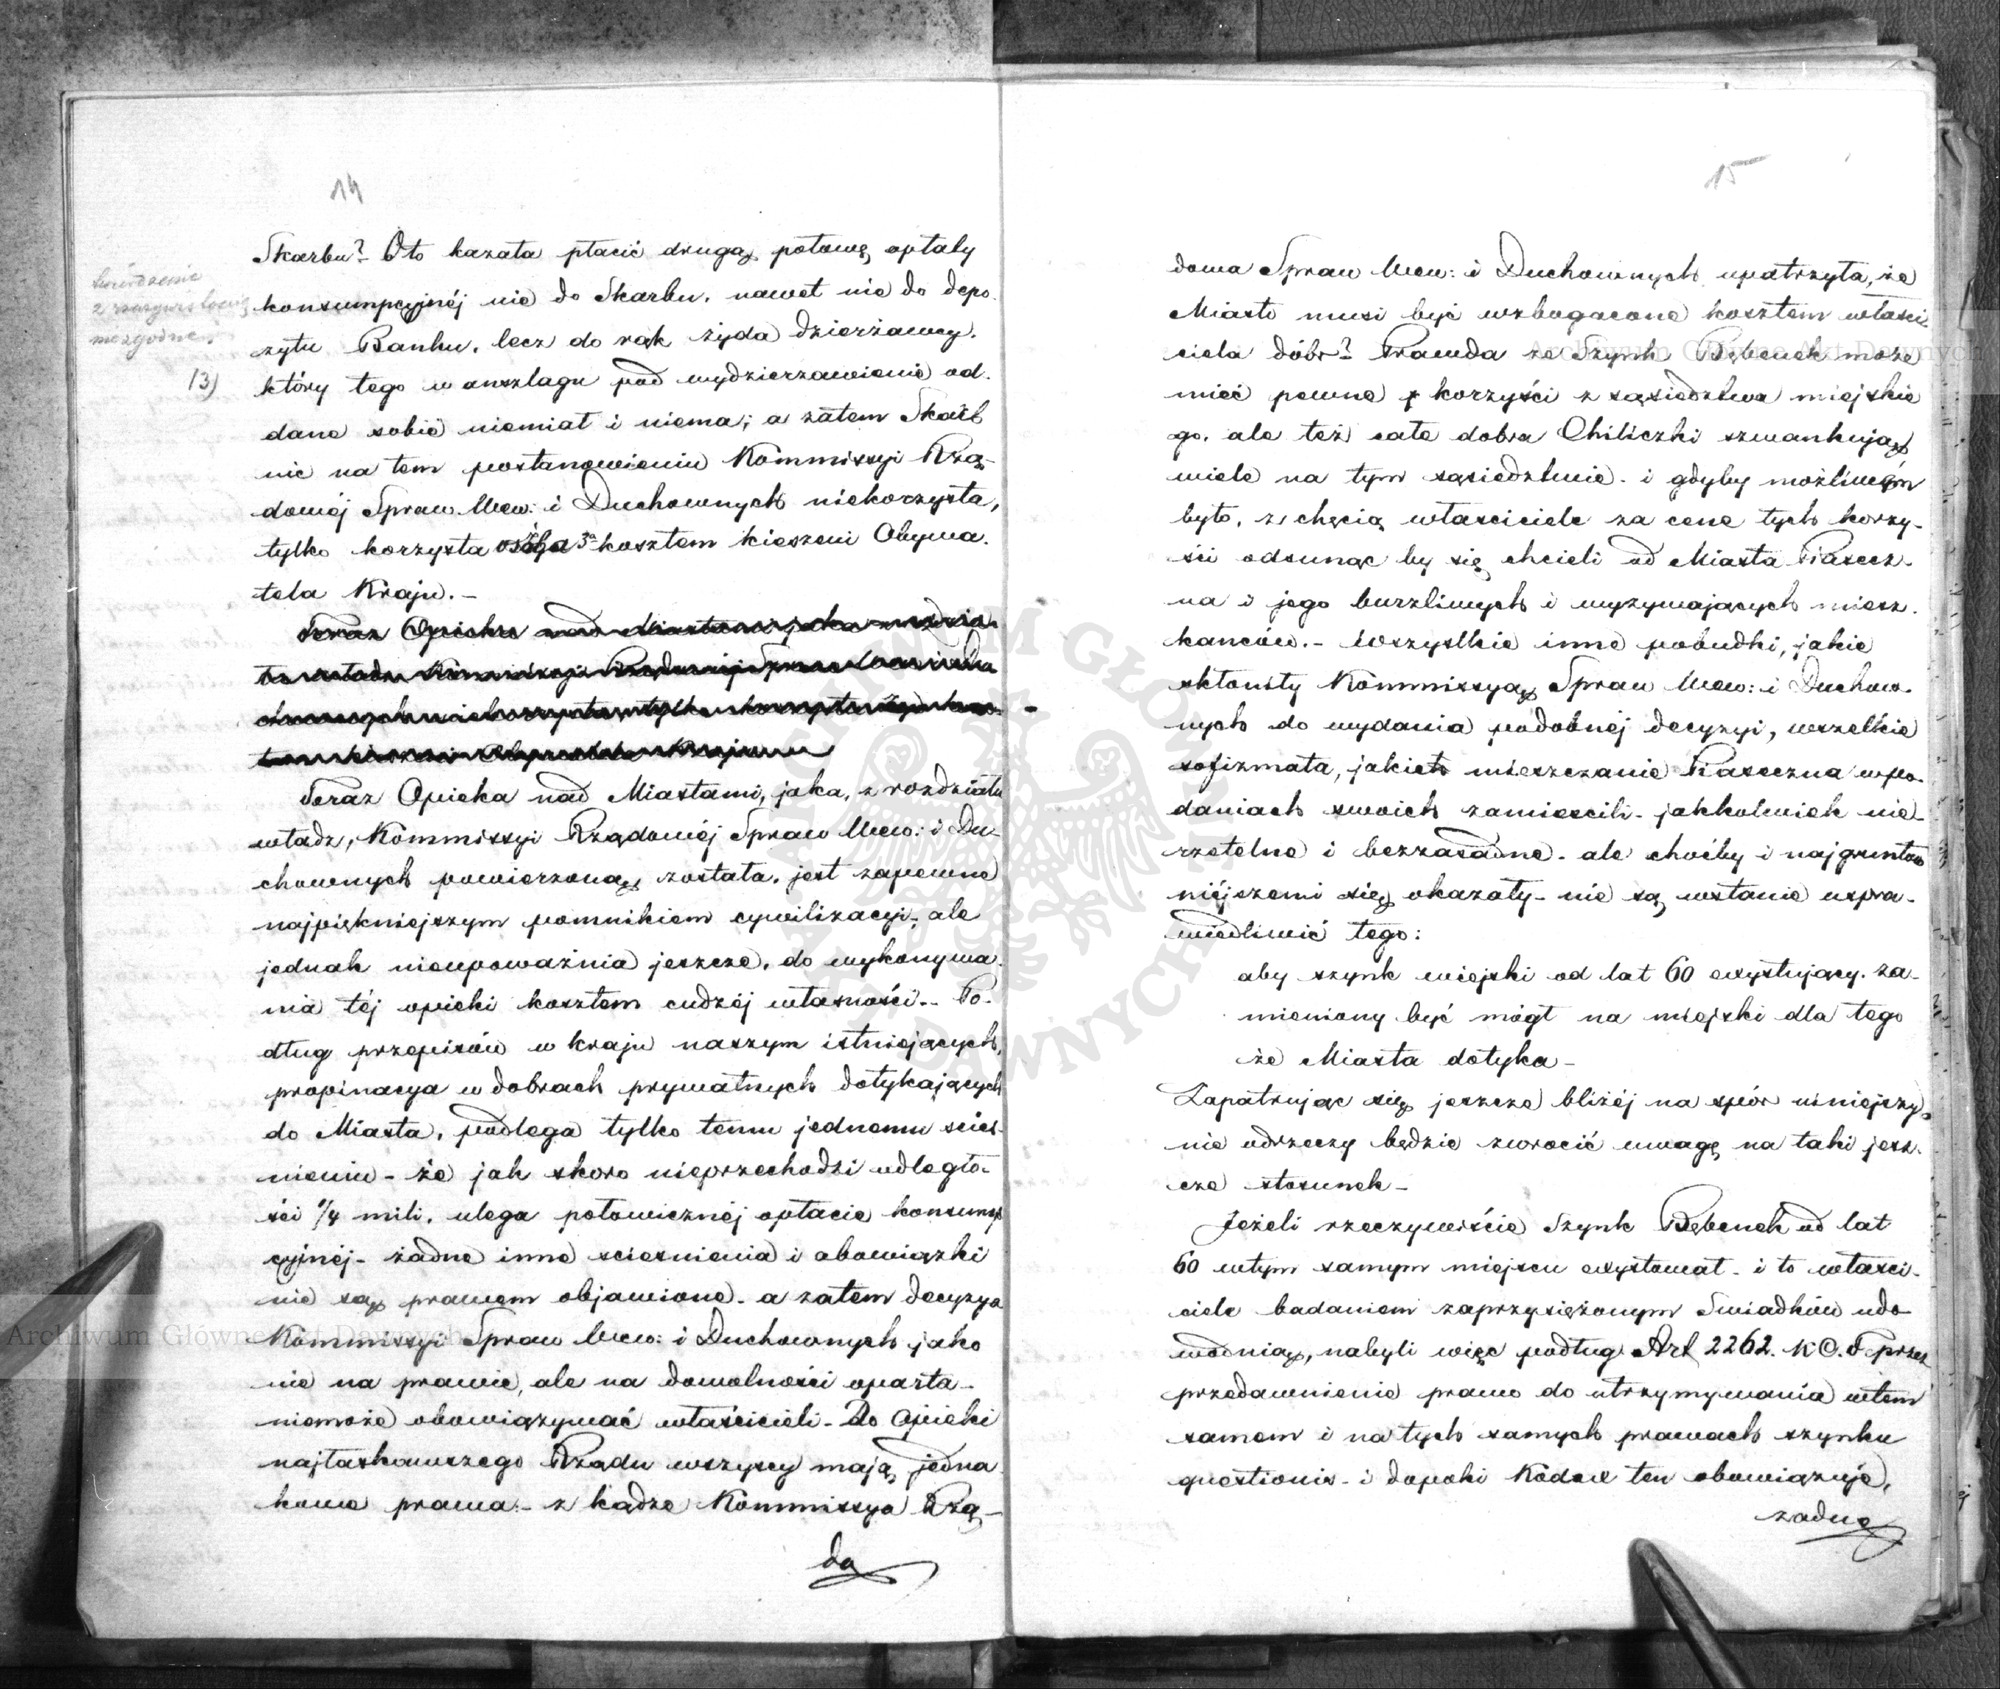 14
Skarbu? Oto kazała płacić drugą połowę opłaty
konsumpcyjnéj nie do Skarbu, nawet nie do depo-
zytu Banku, lecz do rąk żyda dzierżawcy,
13)
który tego w anszlagu pod wydzierzawienie od-
dane sobie niemiał i niema; a zatem Skarb
nic na tem postanowieniu Kommissyi Rzą-
dowéj Spraw Wew: i Duchownych niekorzysta,
tylko korzysta osoba 3a kosztem kieszeni Obywa-
tela Kraju. –
Teraz Opieka nad Miastami, jaka, z rozdziału
władz, Kommissyi Rządowéj Spraw Wew: i Du-
chownych powierzoną została, jest zapewne
najpiękniejszym pomnikiem cywilizacyi, ale
jednak nieupoważnia jeszcze, do wykonywa-
nia téj opieki kosztem cudzéj własności. – Po-
dług przepisów w kraju naszym istniejących,
propinacya w dobrach prywatnych dotykających
do Miasta, podlega tylko temu jednemu ście-
śnieniu – że jak skoro nieprzechodzi odległo-
ści 1/4 mili, ulega połowicznéj opłacie konsump-
cyjnéj – żadne inne ścieśnienia i obowiązki
nie są prawem objawione – a zatem decyzya
Kommissyi Spraw Wew: i Duchownych jako
nie na prawie, ale na dowolności oparta –
niemoże obowiązywać właścicieli – Do Opieki
najłaskawszego Rządu wszyscy mają jedna-
kowe prawa – z kądże Kommissya Rzą-
do
15
dowa Spraw Wew: i Duchownych upatrzyła, że
Miasto musi być wzbogacone kosztem właści-
ciela dóbr? Prawda że Szynk Bębenek może
mieć pewne korzyści z sąsiedztwa miejskie-
go, ale też całe dobra Chiliczki szwankują
wiele na tym sąsiedztwie – i gdyby możliwém
było, z chęcią właściciele za cenę tych korzy-
ści odsunąc by się chcieli od Miasta Piasecz-
na i jego burzliwych i wyzywających miesz-
kańców. – Wszystkie inne pobudki, jakie
skłoniły Kommissyą Spraw Wew: i Duchow-
nych do wydania podobnéj decyzyi, wszelkie
sofizmata, jakich mieszczanie Piaseczna w po-
daniach swoich zamieścili – jakkolwiek nie-
rzetelne i bezzasadne – ale choćby i najgruntow-
niéjszemi się okazały – nie są wstanie uspra-
wiedliwić tego:
aby szynk wiejski od lat 60 exystujący, za-
mieniony być mógł na miejski dla tego
że Miasta dotyka –
Zapatrując się jeszcze bliżéj na spór niniejszy,
nie odrzeczy będzie zwrócić uwagę na taki jesz-
cze stosunek –
Jeżeli rzeczywiście Szynk Bębenek od lat
60 wtym samym miejscu exystował – i to właści-
ciele badaniem zaprzysiężonym Swiadków udo-
wodnią, nabyli więc podług Art 2262. K.C.F. przez
przedawnienie prawo do utrzymywania wtem
samem i na tych samych prawach szynku
questionis – i dopoki Kodex ten obowiązuje,
żadne
Archiwum Główne Akt Dawnych
Archiwum Główne Akt Dawnych
ARCHIWUM GŁÓWNE AKT DAWNYCH